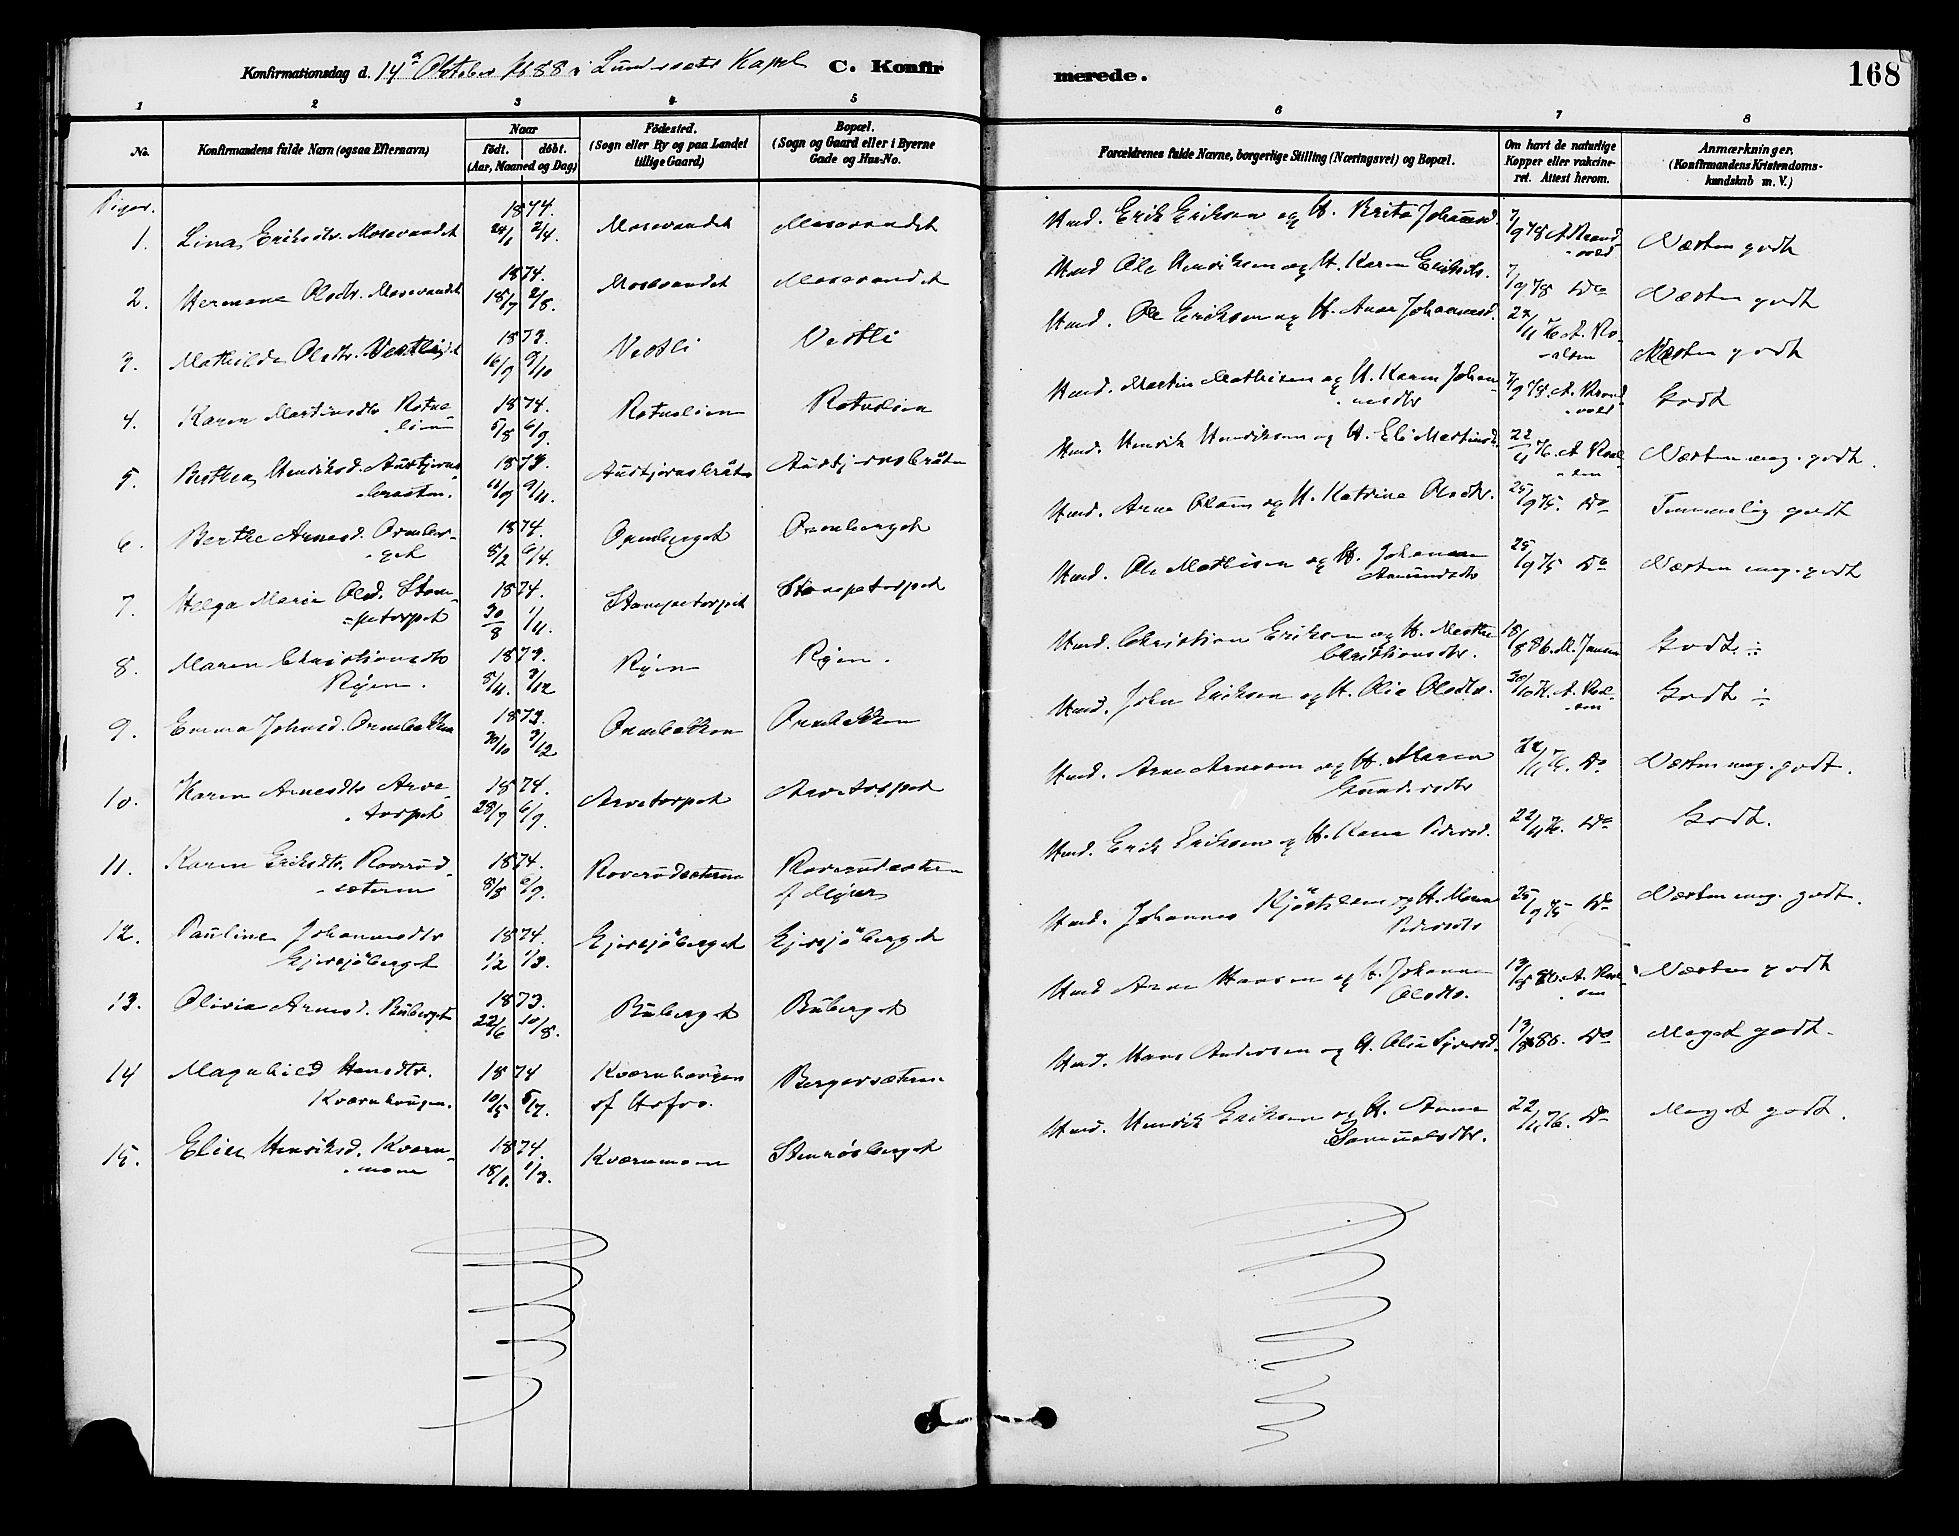 Konfirmationsdag d. 14de Oktober 1888 i Lundersæter Kapel C. Konfirmerede. 168
1 2 3 4 5 6 7 8
No. Konfirmandens fulde Navn (ogsaa Efternavn) Naar födt. döbt. (Aar, Maaned og Dag) Födested. (Sogn eller By og paa Landet tillige Gaard) Bopæl. (Sogn og Gaard eller i Byerne Gade og Hus-No. Forældrenes fulde Navne, borgerlige Stilling (Næringsvei) og Bopæl. Om havt de naturlige Kopper eller vakcineret. Attest herom. Anmærkninger. (Konfirmandens Kristendomskundskab m. V.)
Piger.
1. Lina Eriksdtr. Mosevandet 1874. 2/4. Mosevandet Mosevandet Umd. Erik Eriksen og H. Brita Johannsd. 7/9 78 A. Brandvold Næsten godt
2. Hermane Olsdtr. Mosevandet 1874. 18/7 2/8. Mosevandet Mosevandet Umd Ole Henriksen og H. Karen Eriksdtr. 7/9 78 Do Næsten godt
3. Mathilde Olsdtr. Vestli 1873. 16/9 9/10 Vestli Vestli Umd. Ole Eriksen og H. Anne Johannesd. 22/11 76 A. Roalsen Næsten godt
4. Karen Martinsdtr Rotnelien 1874. 5/8 6/9. Rotnelien Rotnelien Umd. Martin Mathisen og H. Karen Johannesdtr 7/9 78 A. Brandvold Godt
5. Berthea Henriksd. Austjernsbraaten. 1873. 9/11. Austjernsbråten Austjernsbråten Umd. Henrik Henriksen og H. Eli Martinsd. 22/11 76. A Roalsen Næsten meg. godt.
6. Berthe Arnesd. Ormberget 1874. 8/2 6/4. Ormberget Ormberget Umd. Arne Olsen og H. Katrine Olsdtr. 25/9 75. Do Temmelig godt
7. Helga Marie Olsd. Stompetorpet 1874. 30/8 1/11. Stompetorpet Stompetorpet Umd. Ole Mathisen og H. Johanne Amundsdtr 25/9 75 Do Næsten meg. godt
8. Maren Christiansdtr Ryen. 1873. 5/11. 3/12 Ryen Ryen. Umd. Christian Eriksen og H. Marthe Christiansdtr. 18/8 86. M. Jensen Godt. ÷
9. Emma Johnsd. Ormbakken 1873. 30/10 3/12 Ormbakken Ormbakken Umd. John Eriksen og H. Olia Olsdtr. A. Roalsen Godt ÷
10. Karen Arnesdtr Arvetorpet 1874. 28/7 6/9. Arvetorpet Arvetorpet Umd. Arne Arnesen og H. Maren Gundersdtr 22/11 76. Do Næsten meg. godt.
11. Karen Eriksdtr. Roverudsæteren 1874. 8/8 6/9. Roverudsæteren Roverudsæteren Umd. Erik Eriksen og H. Kari Pedersd. 22/11 76. Do Godt.
12. Pauline Johannesdtr Gjersjöberget 1874. 1/2 1/3. Gjersjöberget Gjersjöberget Umd. Johannes Kjöstelsen og H. Maren Pedersdtr 25/9 75 Do Næsten meg. godt.
13. Olivia Arnesd. Buberget 1873. 22/6 10/8. Buberget Buberget Umd Arne Hansen og H. Johanne Olsdtr. 13/8 86. A. Roalsen Næsten godt
14 Magnhild Hansdtr. Kværnhaugen. 1874 10/5 5/7. Kværnhaugen Bergersæteren Umd. Hans Andersen og H. Olia Syversd. 13/8 86. Do Meget godt.
15. Elise Henriksd. Kværnmoen 1874. 18/1. 1/3. Kværnmoen Stenrösberget Umd. Henrik Eriksen og H. Anne Samuelsdtr. 22/11 76. Do Meget godt.